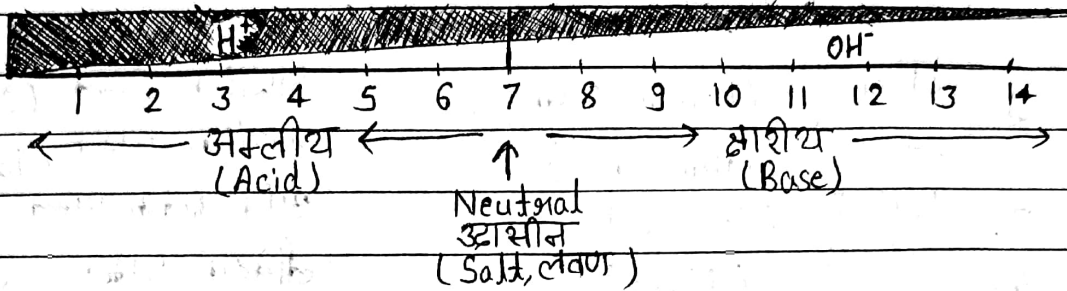 H⁺ OH⁻
1 2 3 4 5 6 7 8 9 10 11 12 13 14
अम्लीय क्षारीय
(Acid) (Base)
Neutral
उदासीन
(Salt, लवण)